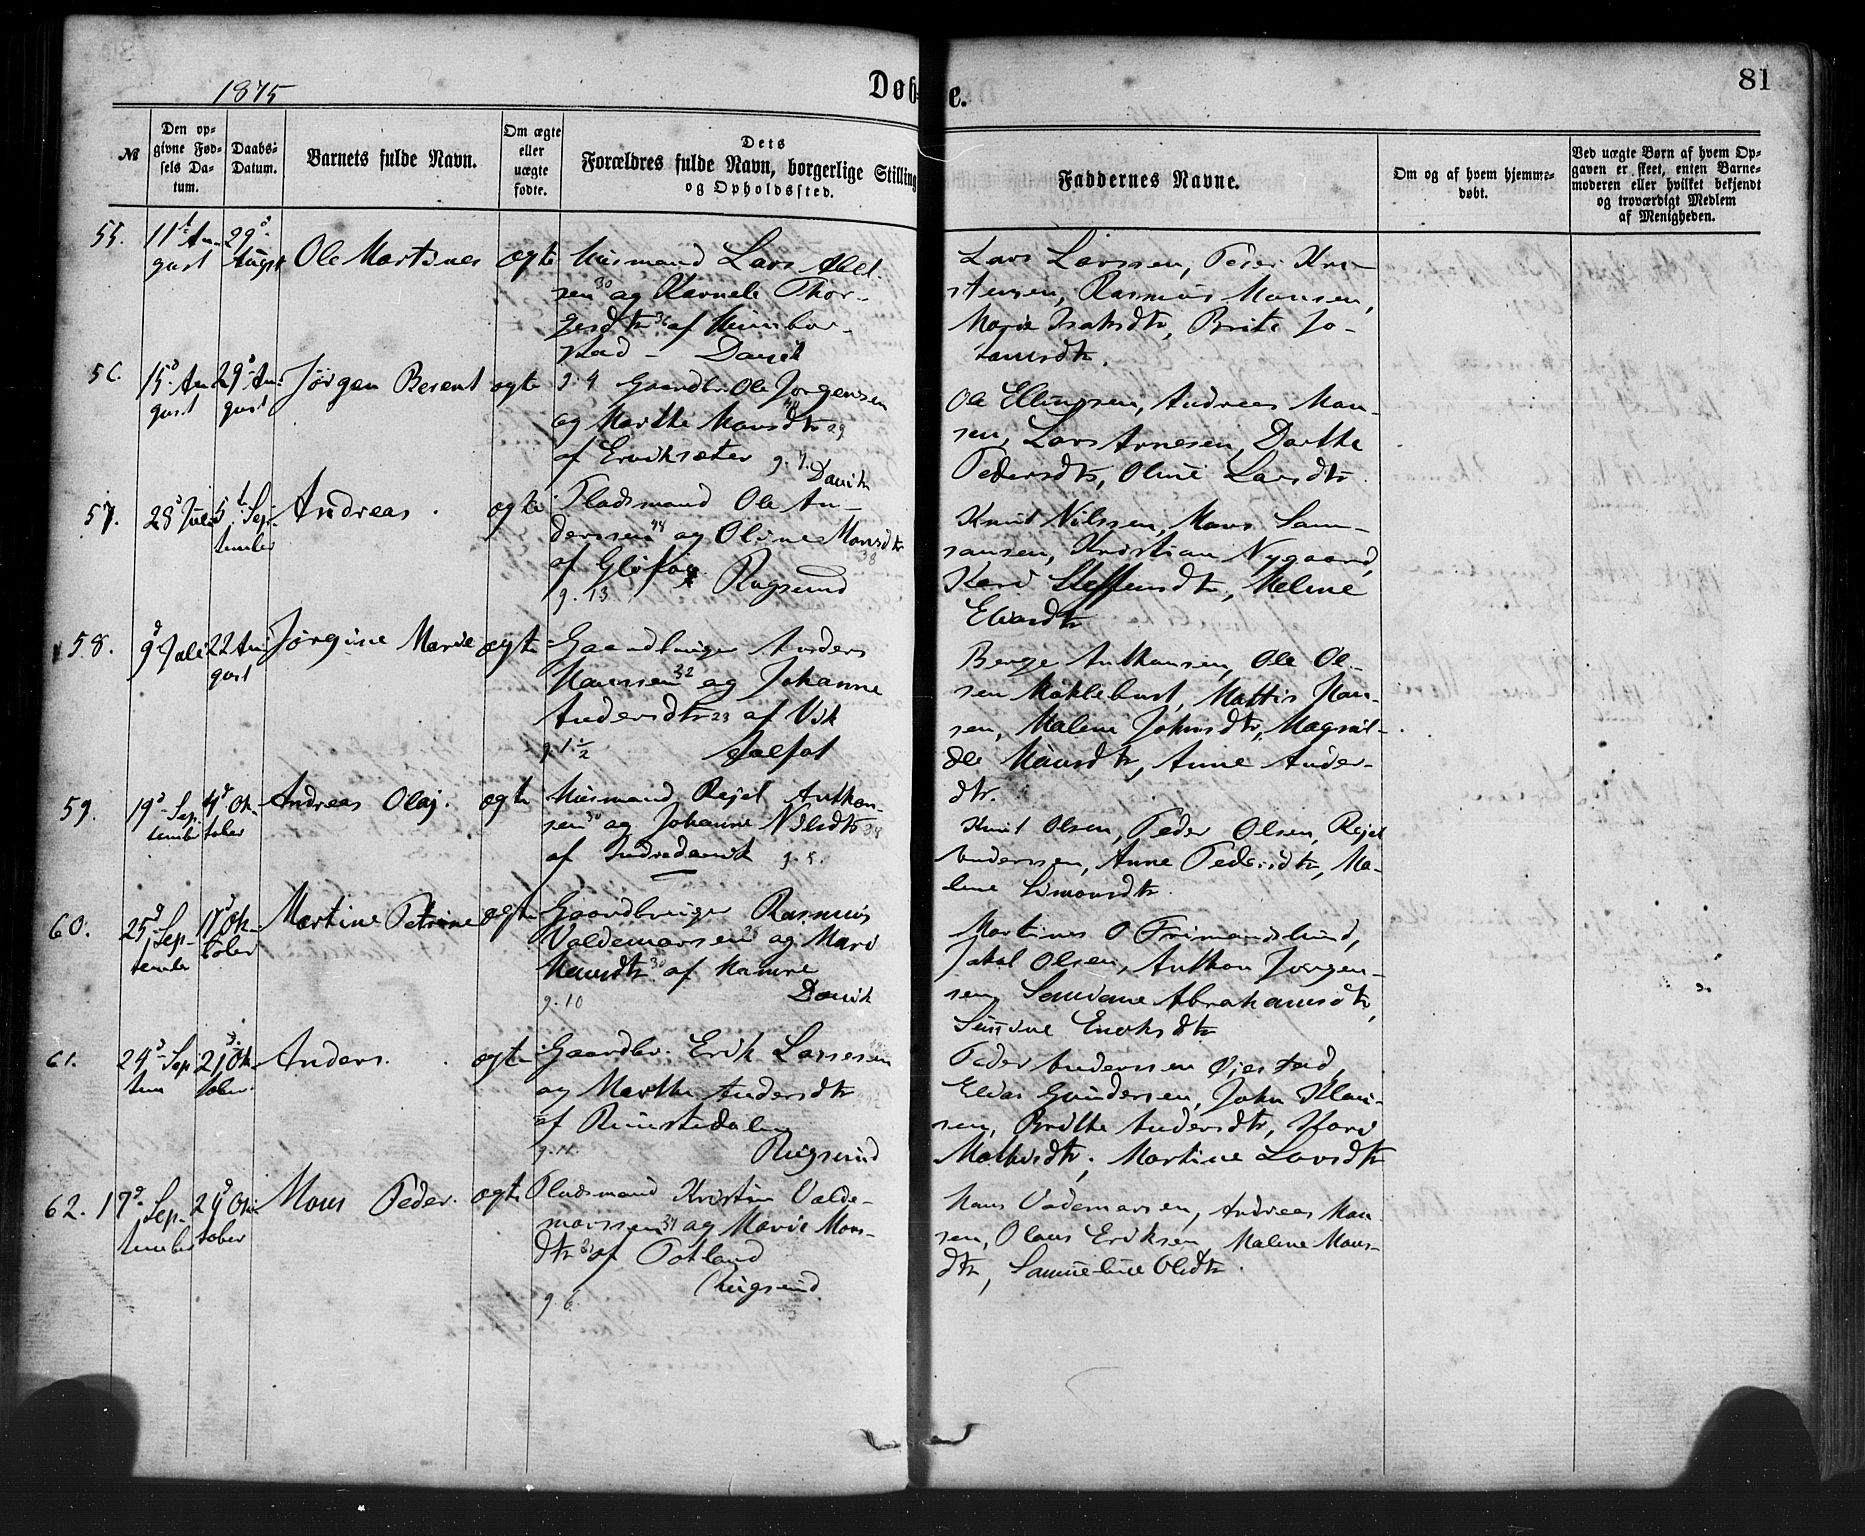 1875
Døbte.
81
№
Den opgivne Fødsels Datum.
Daabs-Datum.
Barnets fulde Navn.
Om ægte eller uægte fødte.
Dets Forældres fulde Navn, borgerlige Stilling og Opholdssted.
Faddernes Navne.
Om og af hvem hjemmedøbt.
Ved uægte Børn af hvem Opgaven er skeet, enten Barnemoderen eller hvilket bekjendt og troværdigt Medlem af Menigheden.
55.
11te August
29de August
Ole Martines
ægte
Husmand Lars Abel-
sen 30 og Karnele Thor-
gersdtr 36 af Humbor-
stad - Davik
g. 4
Lars Larssen, Peder Kri-
stensen, Rasmus Monsen,
Marie Isaksdtr, Brite Jo-
hansdtr.
56.
15de August
29de August
Jørgen Berent
ægte
Gaardbr. Ole Jørgensen
og Marthe Monsdtr 29
af Erviksæter g. 7.
Davik
Ole Ellingsen, Andreas Mon-
sen, Lars Arnesen, Dorthe
Pedersdtr, Oline Larsdtr.
57.
28de Juli
5te September
Andreas
ægte
Pladsmand Ole An-
derssen 48 og Oline Monsdtr
38
af Gloføy. Rugsund
g. 13
Knut Nilssen, Mons Sam-
sonsen, Kristian Nygaard,
Kari Steffensdtr, Meline
Eliasdtr
58.
9de Juli
22 August
Jørgine Marie
ægte
Gaardbruger Anders
Hanssen 32 og Johanne
Andersdtr 23 af Vik
g. 1½ Aalfot
Berge Anthonsen, Ole Ol-
sen Myklebust, Mattis Han-
sen, Malene Johnsdtr, Magnil-
de Monsdtr, Anne Ander-
dtr.
59.
19de September
4de Oktober
Andreas Olaj.
ægte
Husmand Rejel Anthon-
sen 30 og Johanne Nilsdtr 28
af Indredavik g. 5.
Knut Olsen, Peder Olsen, Rejel
Anderssen, Anne Pedersdtr, Ma-
lene Simonsdtr.
60.
25de September
17de Oktober
Martine Petrine
ægte
Gaardbruger Rasmus
Valdemarsen 28 og Mari
Hansdtr 30 af Hamre
g. 10 Davik
Martines O Frimandslund,
Jakob Olsen, Anthon Jørgen-
sen, Samdane Abrahamsdtr,
Sussine Enoksdtr
61.
24de September
21de Oktober
Anders.
ægte
Gaardbr. Erik Lassesen
og Marthe Andersdtr
af Rimstedalen
g. 11. Rugsund
Peder Anderssen Øiestad,
Elias Gundersen, John Klau-
sen, Brithe Andersdtr, Kari
Mathisdtr, Martine Larsdtr
62.
17de September
24de Oktober
Mons Peder.
ægte
Pladsmand Kristen Valde-
marssen 34 og Marie Mons-
dtr 31 af Totland
g. 6. Rugsund.
Hans Vademarsen, Andreas Han-
sen, Olaus Eriksen, Malene Mons-
dtr, Samueline Olsdtr.